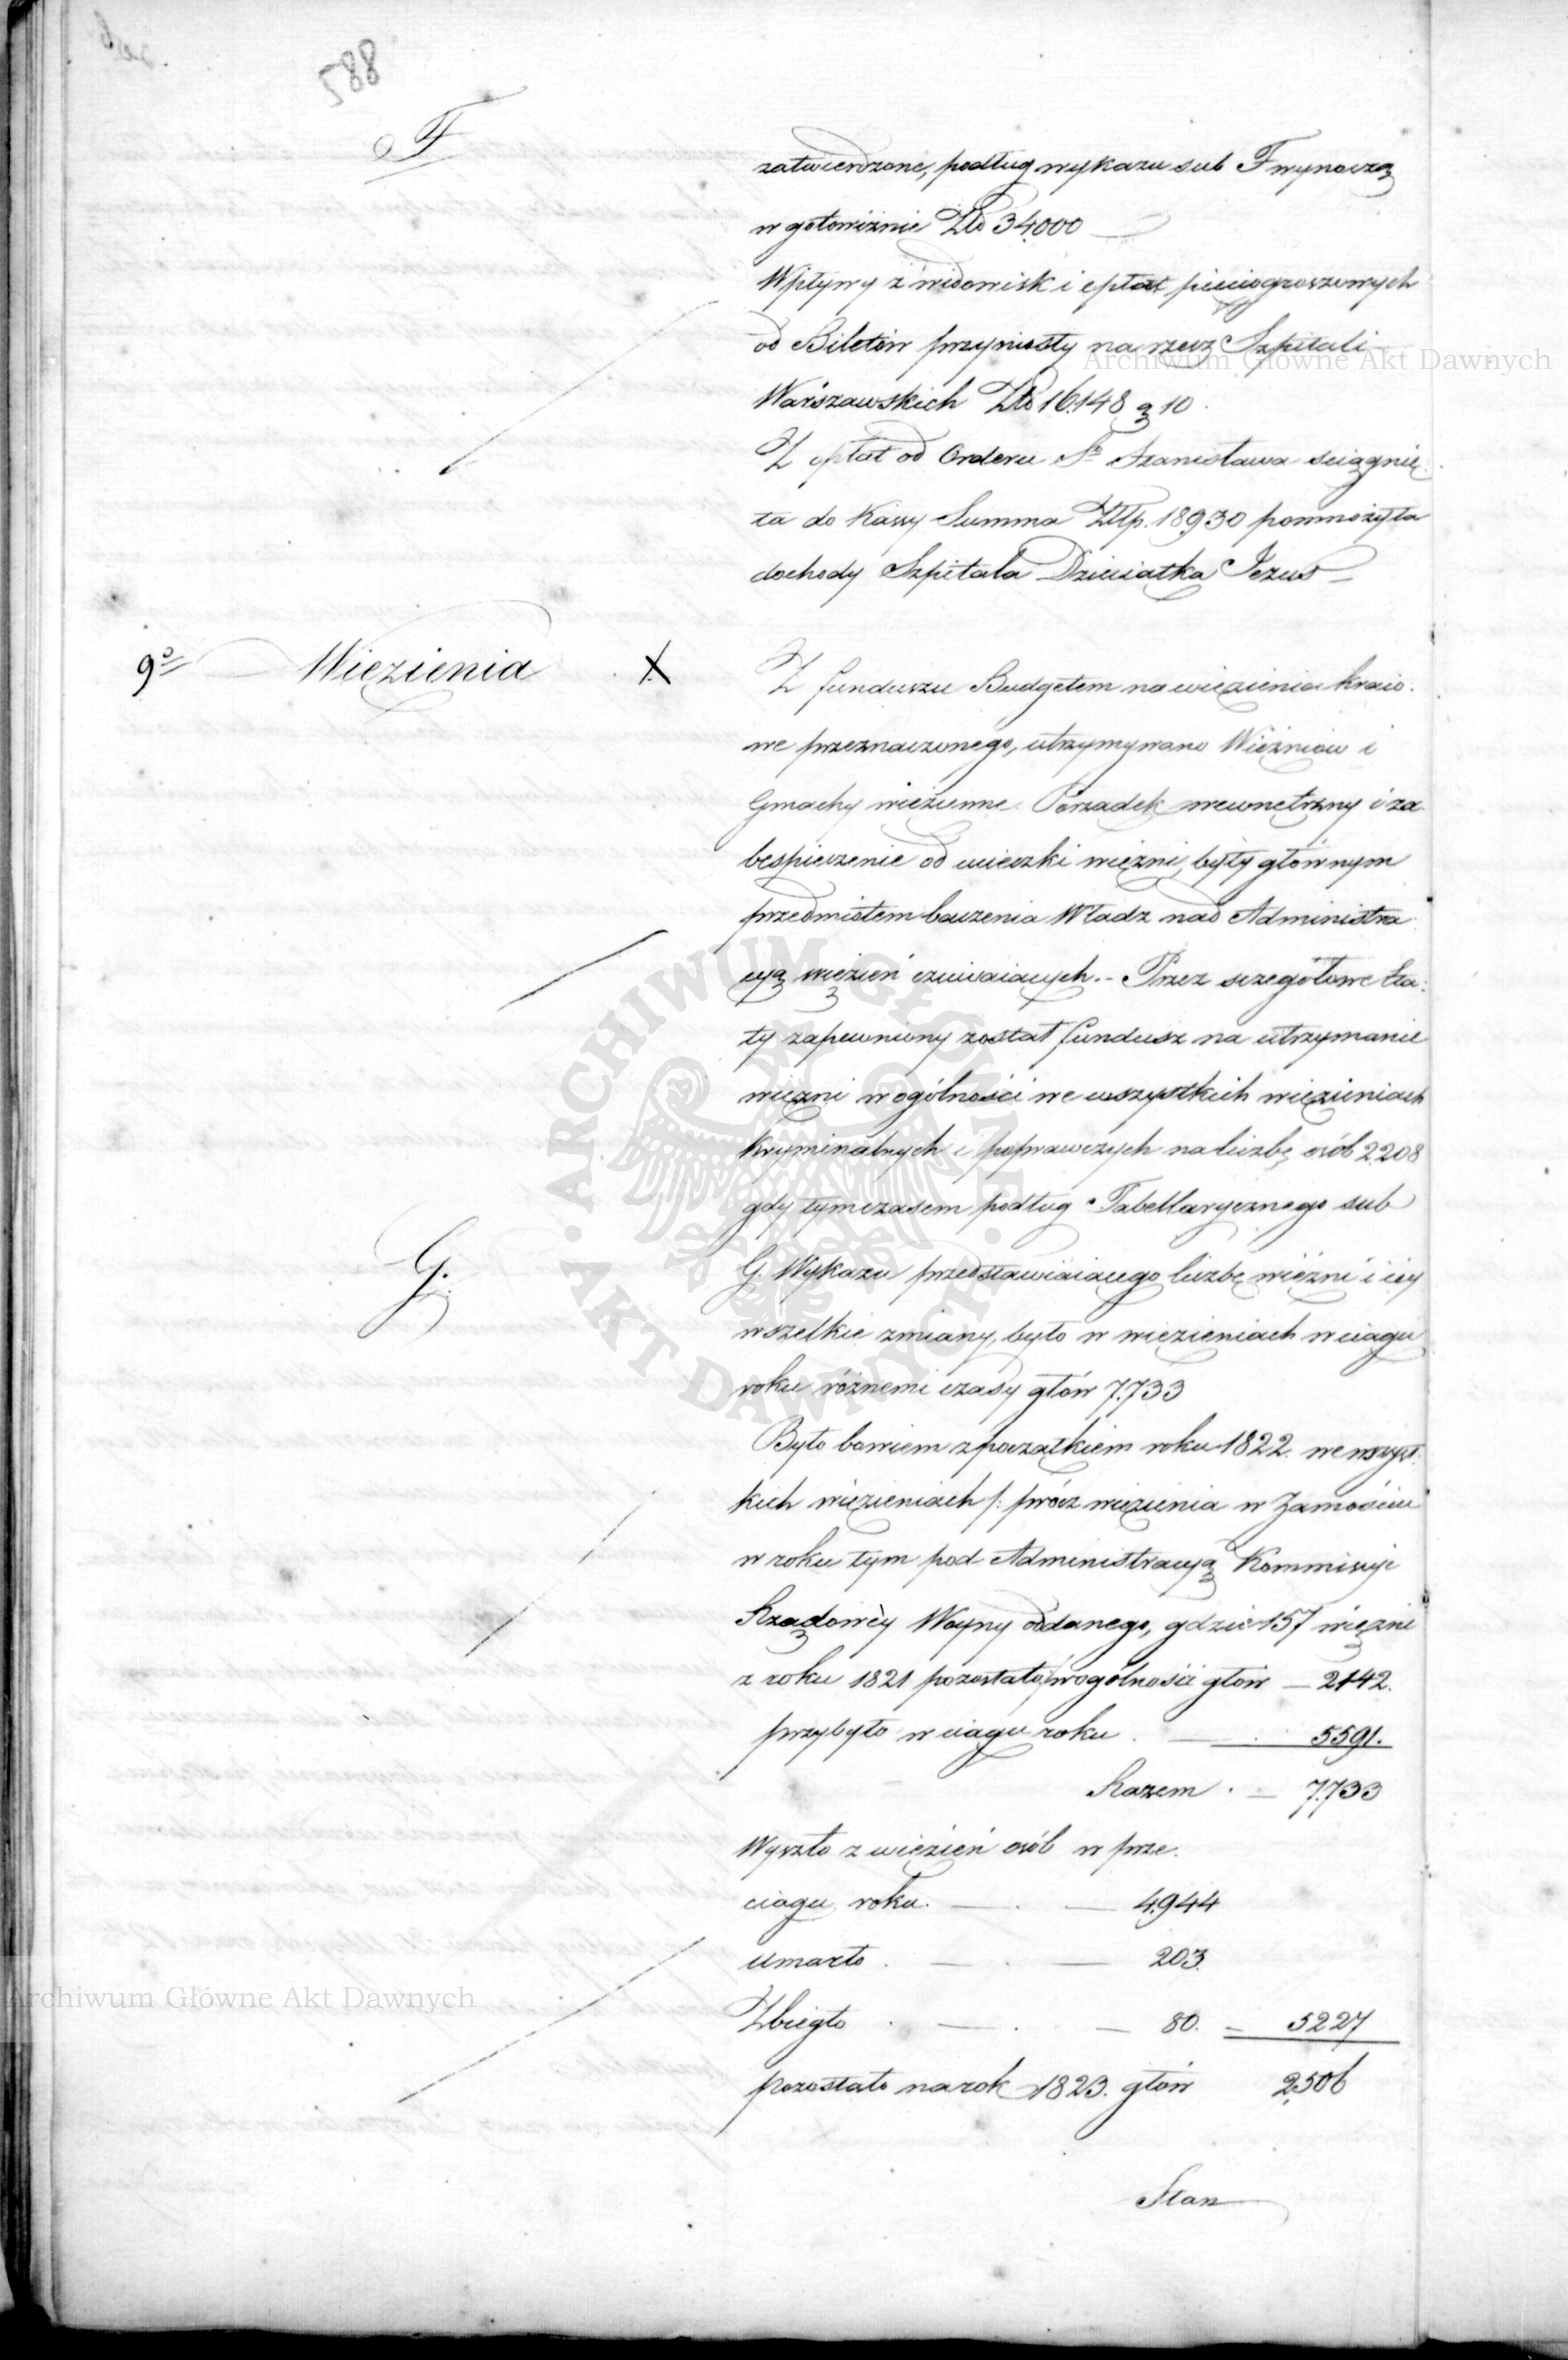 588
F
zatwierdzone, podług wykazu sub F wynoszą
w gotowiźnie Złto 34,000
Wpływy z widowisk i opłat pięciogroszowych
od Biletów przyniosły na rzecz Szpitali
Warszawskich Złto 16.148 g 10.
Z opłat od Orderu Sgo Stanisława ściągnię:
ta do Kassy Summa Złtp. 18,930 pomnożyła
dochody Szpitala Dzieciątka Jezus
9o Więzienia X
Z funduszu Budgetem na więzienia kraio:
we przeznaczonego, utrzymywano Więźniów i
Gmachy więzienne. Porządek wewnętrzny i za
bespieczenie od ucieczki więźni, były głównym
przedmiotem baczenia Władz nad Administra
cyą więzień czuwaiących. - Przez szczegółowe Eta:
ty zapewniony został fundusz na utrzymanie
więźni w ogólności we wszystkich więzieniach
kryminalnych i poprawczych na liczbę osób 2,208
gdy tymczasem podług Tabellarycznego sub
G.
G. Wykazu przedstawiaiącego liczbę więźni i iey
wszelkie zmiany, było w więzieniach w ciągu
roku różnemi czasy głów 7,733
Było bowiem z początkiem roku 1822. we wszyst:
kich więzieniach /: prócz więzienia w Zamościu
w roku tym pod Administracyą Kommissyi
Rządowéy Woyny oddanego, gdzie 157 więźni
z roku 1821 pozostało/ w ogólności głów — 2142.
przybyło w ciągu roku . — . 5591.
Razem . — 7,733
Wyszło z więzień osób w prze:
ciągu roku. — . — 4,944
umarło . — . — 203.
Zbiegło . — . — 80. — 5227
pozostało na rok 1823. głów 2,506
Stan
Archiwum Główne Akt Dawnych
Archiwum Główne Akt Dawnych
ARCHIWUM GŁÓWNE · AKT DAWNYCH ·